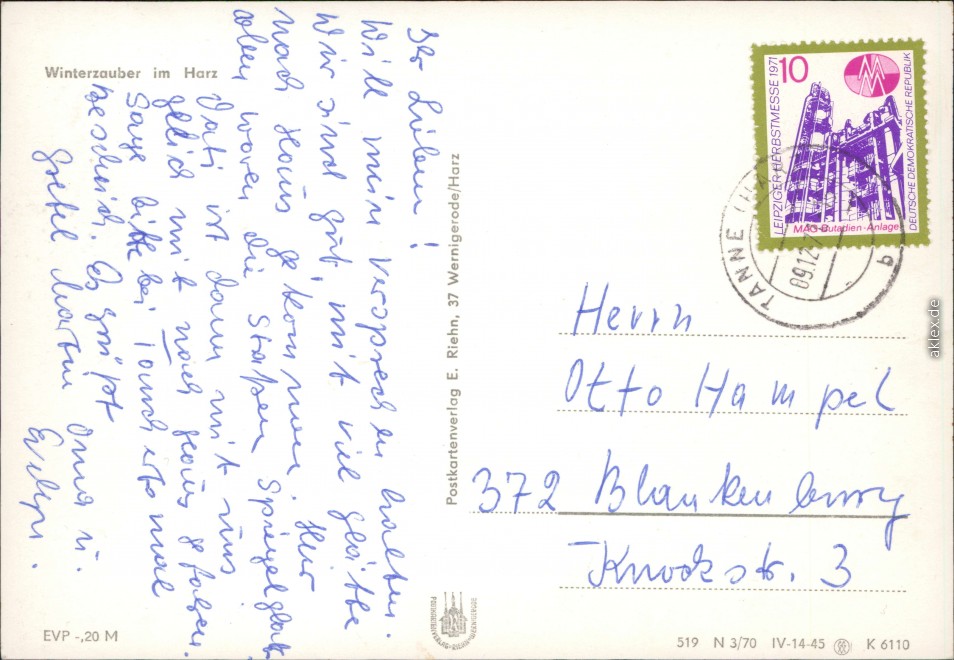 Winterzauber im Harz
Ihr Lieben!
Will mein versprechen halten.
Wir sind gut, mit viel Glätte
nach Haus gekommen. Hier
oben waren die Straßen Spiegelglatt
Vati ist dann mit uns
gleich mit nach Haus gefahren.
Sage bitte bei
bescheid. Es grüßt
Oma u.
Evelyn.
Postkartenverlag E. Riehn, 37 Wernigerode/Harz
LEIPZIGER HERBSTMESSE 1971
10
MM
DEUTSCHE DEMOKRATISCHE REPUBLIK
MAG-Butadien-Anlage
TANNE (HA
09.12.7
b
Herrn
Otto Hampel
372 Blankenburg
Knockstr. 3
EVP -,20 M
519 N 3/70 IV-14-45 K 6110
aklex.de